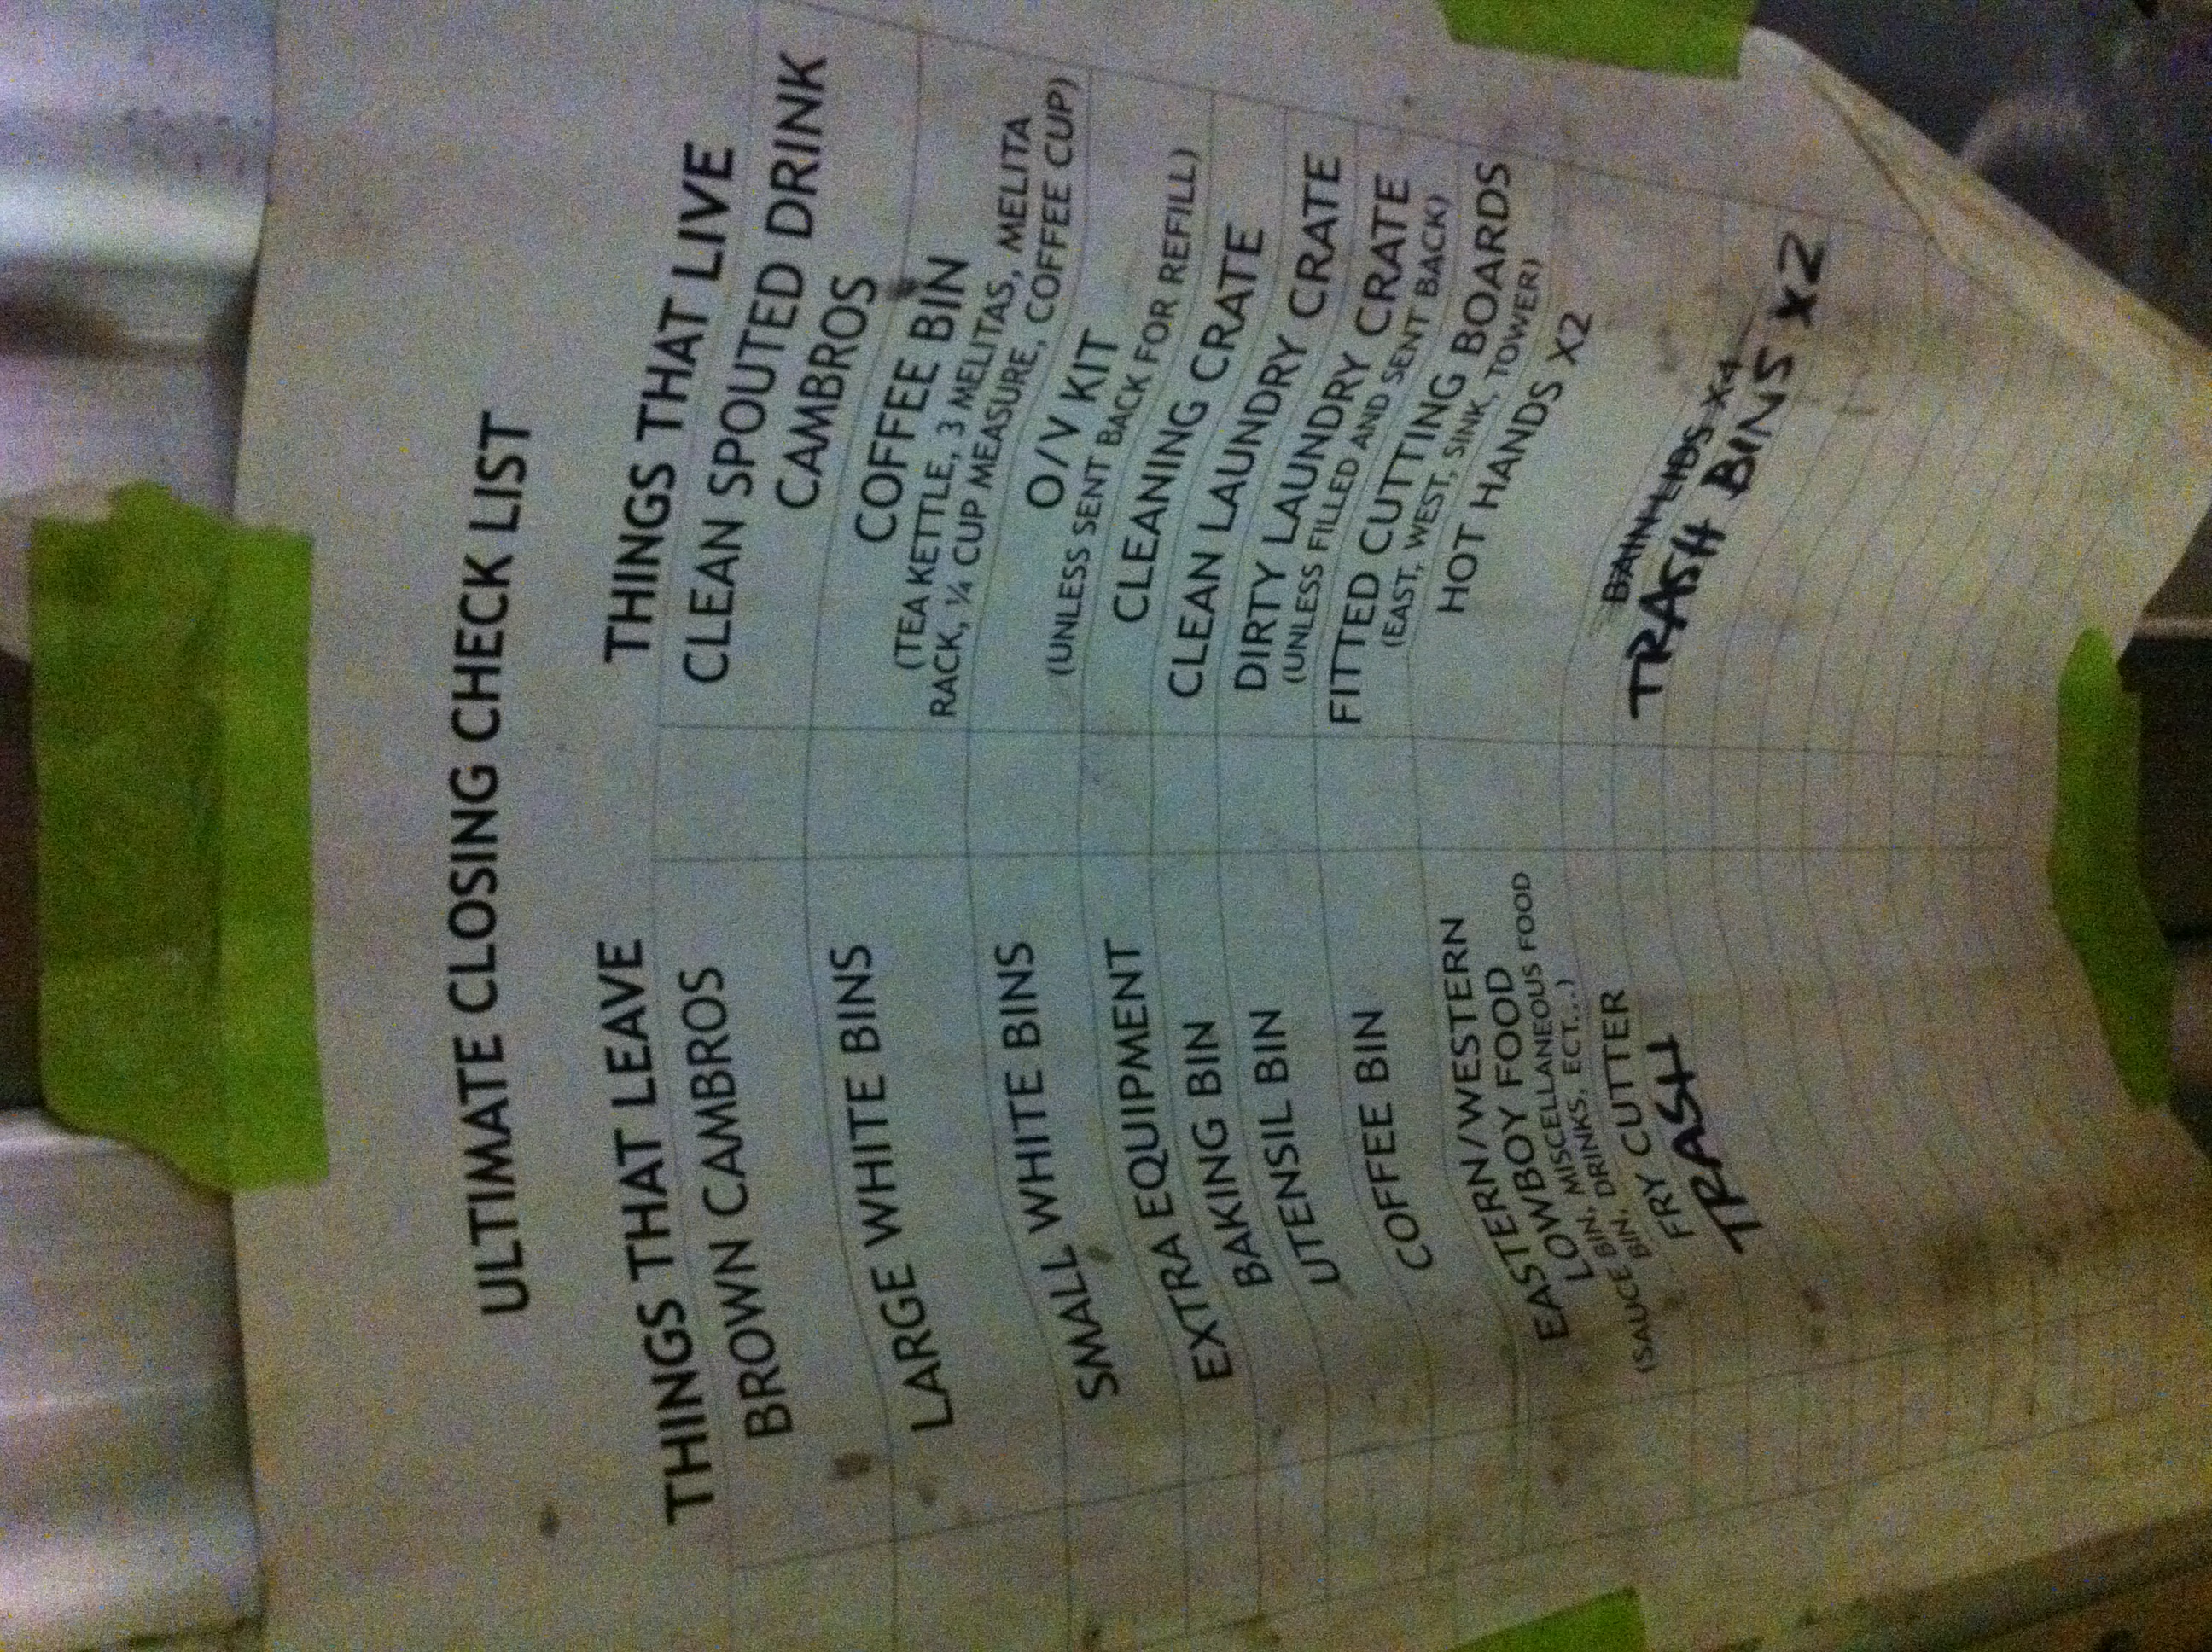 ULTIMATE CLOSING CHECK LIST
THINGS THAT LEAVE
BROWN CAMBROS
LARGE WHITE BINS
SMALL WHITE BINS
EXTRA EQUIPMENT
BAKING BIN
UTENSIL BIN
COFFEE BIN
EASTERN/WESTERN
LOWBOY FOOD
(SAUCE BIN, MISCELLANEOUS FOOD
BIN, DRINKS, ECT...)
FRY CUTTER
TRASH
THINGS THAT LIVE
CLEAN SPOUTED DRINK
CAMBROS
COFFEE BIN
(TEA KETTLE, 3 MELITAS, MELITA
RACK, ¼ CUP MEASURE, COFFEE CUP)
O/V KIT
(UNLESS SENT BACK FOR REFILL)
CLEANING CRATE
CLEAN LAUNDRY CRATE
DIRTY LAUNDRY CRATE
(UNLESS FILLED AND SENT BACK)
FITTED CUTTING BOARDS
(EAST, WEST, SINK, TOWER)
HOT HANDS X2
BAIN LIDS X4
TRASH BINS X2